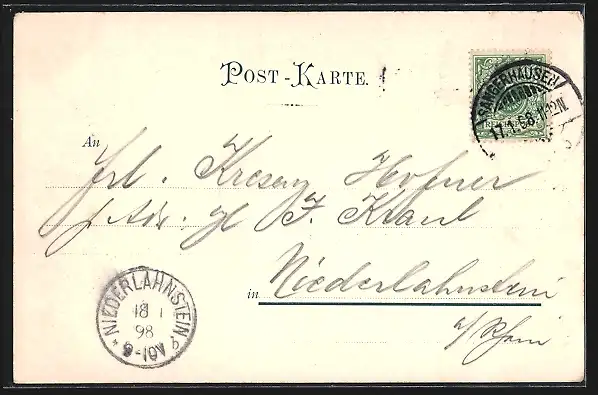 POST-KARTE.
SANGERHAUSEN
17.1.98.11-12N.
An
Frl. Kresen Hofner
p Adr. H J. Kraul
in Niederlahnstein
a/Rhein
NIEDERLAHNSTEIN
18 1
98
9-10V